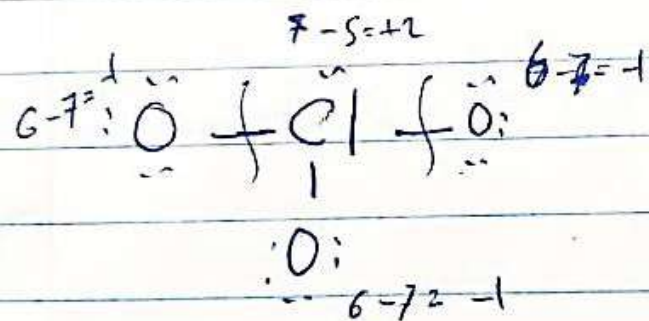 7-5=+2
6-7=-1 :O - Cl - O: 6-7=-1
:O:
6-7=-1